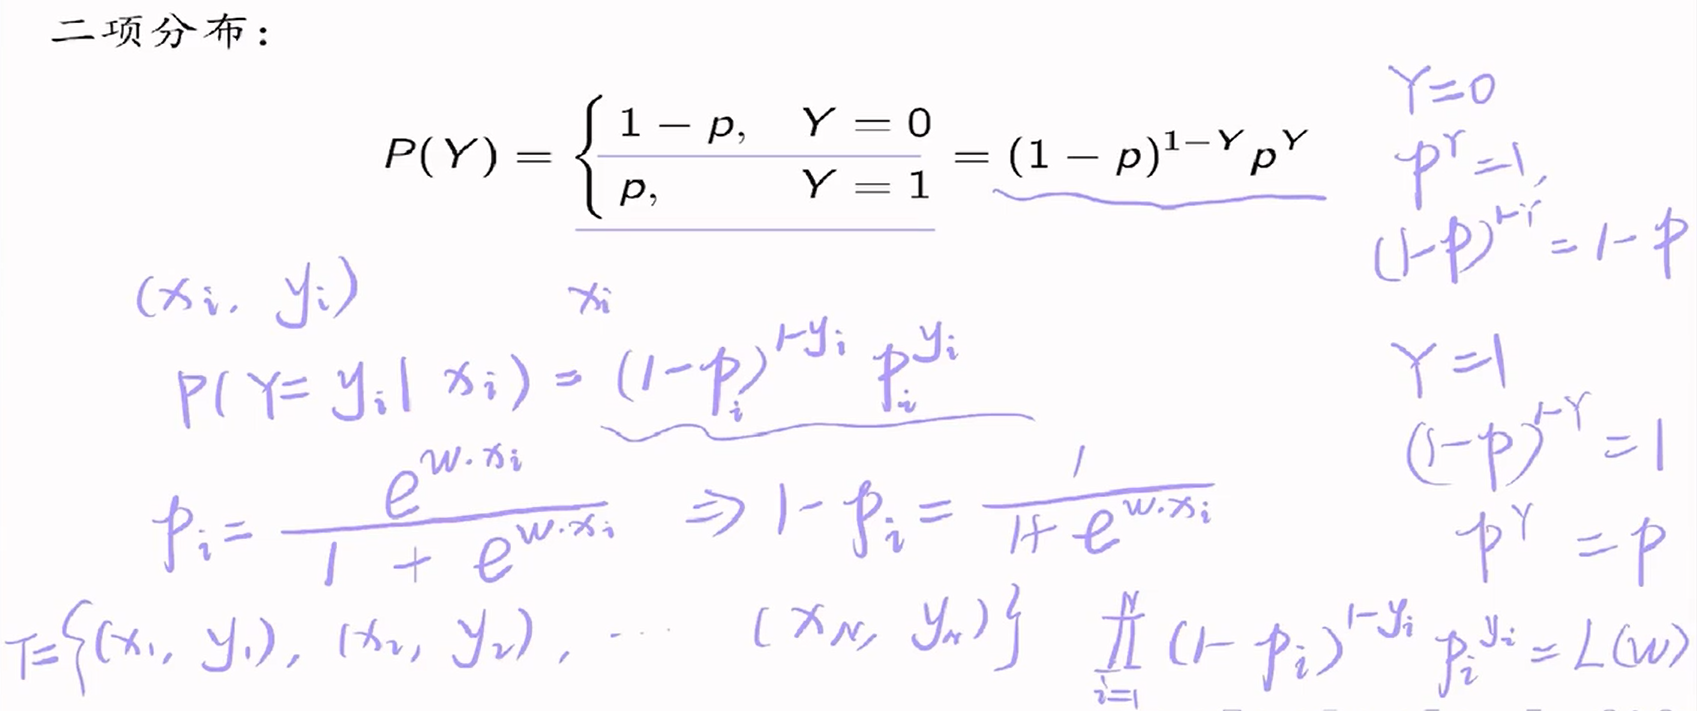 二项分布：
P(Y) = { 1 − p, Y = 0
p, Y = 1 = (1 − p)^{1−Y} p^Y
Y=0
p^Y =1,
(1-p)^{1-Y} = 1-p
(x_i, y_i)
x_i
P(Y= y_i | x_i) = (1-p_i)^{1-y_i} p_i^{y_i}
Y=1
(1-p)^{1-Y} = 1
p^Y = p
p_i = \frac{e^{w·x_i}}{1 + e^{w·x_i}} ⇒ 1-p_i = \frac{1}{1+ e^{w·x_i}}
T={(x_1, y_1), (x_2, y_2), ... (x_N, y_N)} ∏_{i=1}^{N} (1-p_i)^{1-y_i} p_i^{y_i} = L(w)